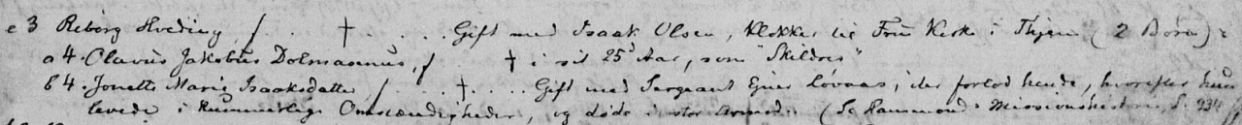 c 3 Reborg Hveding, f. . . † . . . . Gift med Isaak Olsen, Klokker til Frue Kirke i Thjem (2 Børn):
a 4. Olavus Jakobus Dolmasenus, f. . . † i sit 25d Aar, som "Skildrer"
b 4. Jonetta Marie Isaaksdatter f. . . . † . . . . Gift med Sergeant Ejner Løvaas, der forlod hende, hvorefter hun
levede i kummerlige Omstændigheder, og døde i stor Armod. (Se Hammond: Missionshist. S. 234